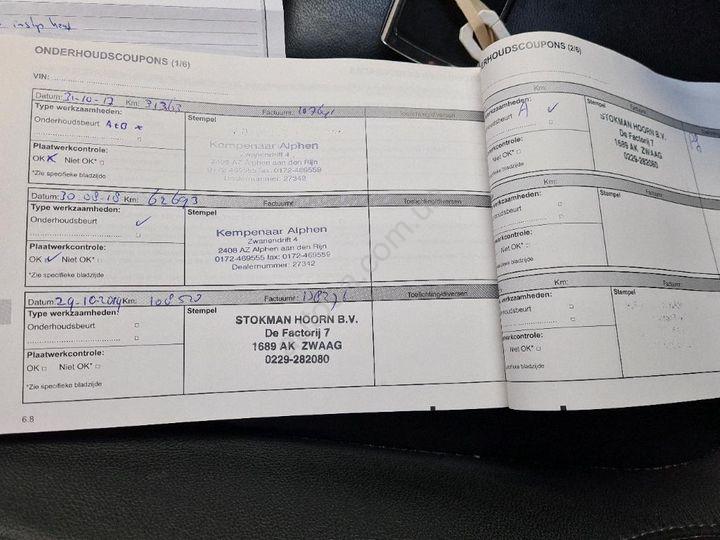 ONDERHOUDSCOUPONS (1/6)
VIN:
Datum: 31-10-17 Km: 31363 Factuurnr.: Toelichting/diversen
Type werkzaamheden: Stempel
Onderhoudsbeurt A+B
Kempenaar Alphen
Zwanendrift 4
2408 AZ Alphen aan den Rijn
0172-469555 fax: 0172-469559
Dealernummer: 27342
Plaatwerkcontrole:
OK X Niet OK* □
*Zie specifieke bladzijde
Datum: 30-08-18 Km: 62693 Factuurnr. Toelichting/diversen
Type werkzaamheden: Stempel
Onderhoudsbeurt ✓
Kempenaar Alphen
Zwanendrift 4
2408 AZ Alphen aan den Rijn
0172-469555 fax: 0172-469559
Dealernummer: 27342
Plaatwerkcontrole:
OK ✓ Niet OK* □
*Zie specifieke bladzijde
Datum: 29-10-2019 Km: Factuurnr.: Toelichting/diversen
Type werkzaamheden: Stempel
Onderhoudsbeurt □
STOKMAN HOORN B.V.
De Factorij 7
1689 AK ZWAAG
0229-282080
Plaatwerkcontrole:
OK □ Niet OK* □
*Zie specifieke bladzijde
6.8
ERHOUDSCOUPONS (2/6)
Km:
zaamheden: Stempel
dsbeurt A ✓
STOKMAN HOORN B.V.
De Factorij 7
1689 AK ZWAAG
0229-282080
controle:
Niet OK* □
ieke bladzijde
Km:
zaamheden: Stempel
dsbeurt □
controle:
Niet OK* □
ke bladzijde
Km:
Stempel
Niet OK* □